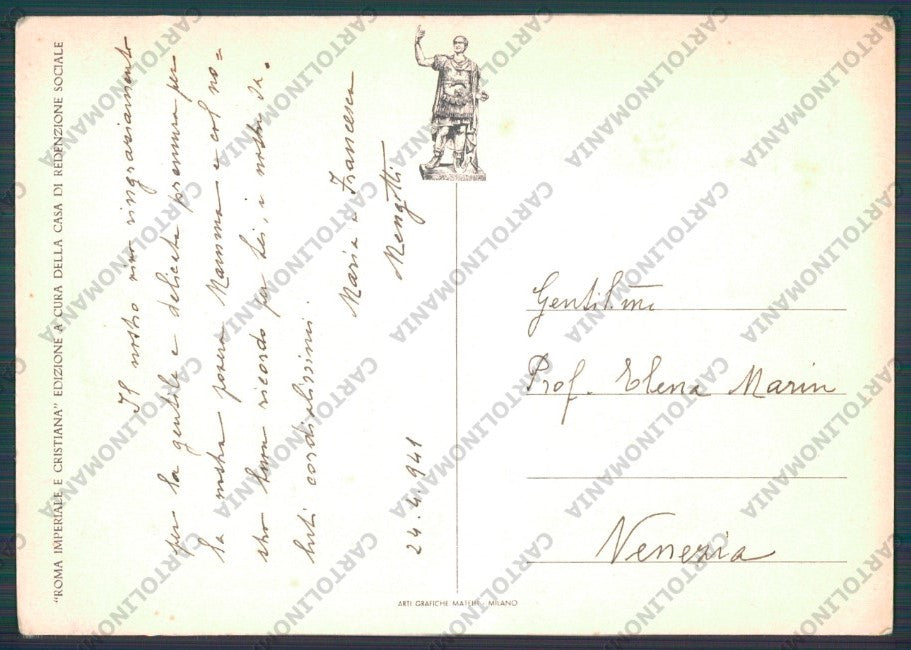 "ROMA IMPERIALE E CRISTIANA" EDIZIONE A CURA DELLA CASA DI REDENZIONE SOCIALE
Il nostro vivo ringraziamento
per la gentile e delicata premura per
la nostra povera Mamma e col no=
stro buon ricordo per Lei, i nostri sa=
luti cordialissimi.
Maria e Francesca
24.4.941
Gentil.ma
Prof. Elena Marin
Venezia
ARTI GRAFICHE MILANO
CARTOLINOMANIA